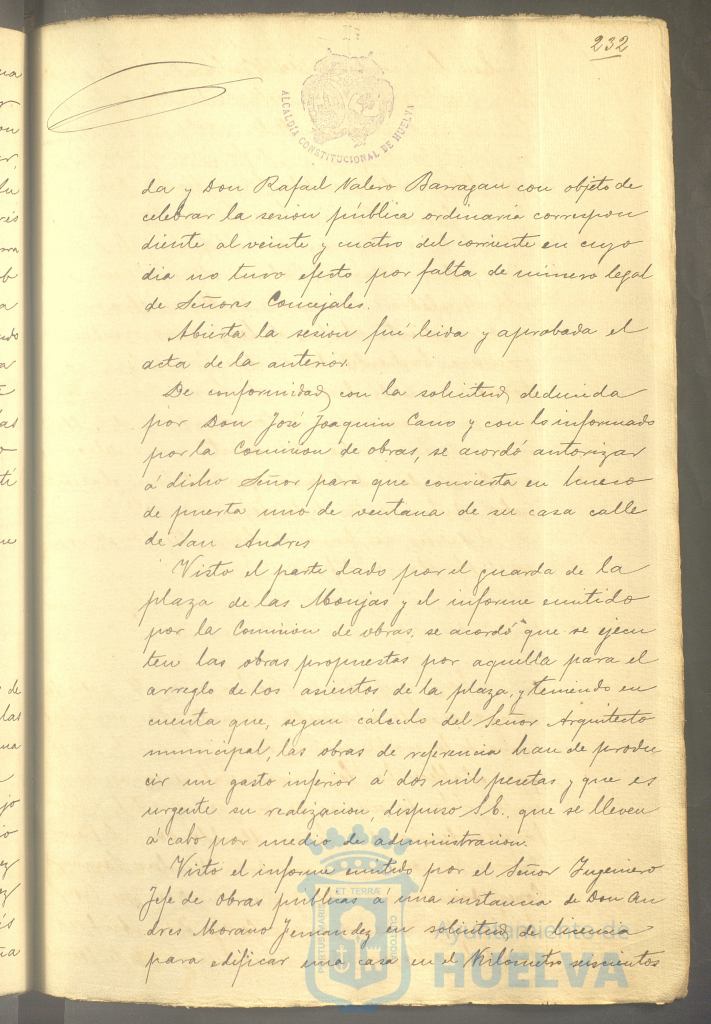 232
ALCALDÍA CONSTITUCIONAL DE HUELVA
da y Don Rafael Valero Barragan con objeto de
celebrar la sesion pública ordinaria correspon
diente al veinte y cuatro del corriente en cuyo
dia no tuvo efecto por falta de número legal
de Señores Concejales.
Abierta la sesion fué leida y aprobada el
acta de la anterior.
De conformidad con la solicitud deducida
por Don José Joaquin Cano y con lo informado
por la Comision de obras, se acordó autorizar
á dicho Señor para que convierta en hueco
de puerta uno de ventana de su casa calle
de San Andres
Visto el parte dado por el guarda de la
plaza de las Monjas y el informe emitido
por la Comision de obras, se acordó que se ejecu
ten las obras propuestas por aquella para el
arreglo de los asientos de la plaza, y teniendo en
cuenta que, segun cálculo del Señor Arquitecto
municipal, las obras de referencia han de produ
cir un gasto inferior á dos mil pesetas y que es
urgente su realizacion, dispuso S.E. que se lleven
á cabo por medio de administracion.
Visto el informe emitido por el Señor Ingeniero
Jefe de Obras públicas á una instancia de Don An
dres Morano Fernandez en solicitud de licencia
para edificar una casa en el Kilómetro seiscientos
PORTUS MARIS ET TERRÆ CUSTODIA
Ayuntamiento de
HUELVA